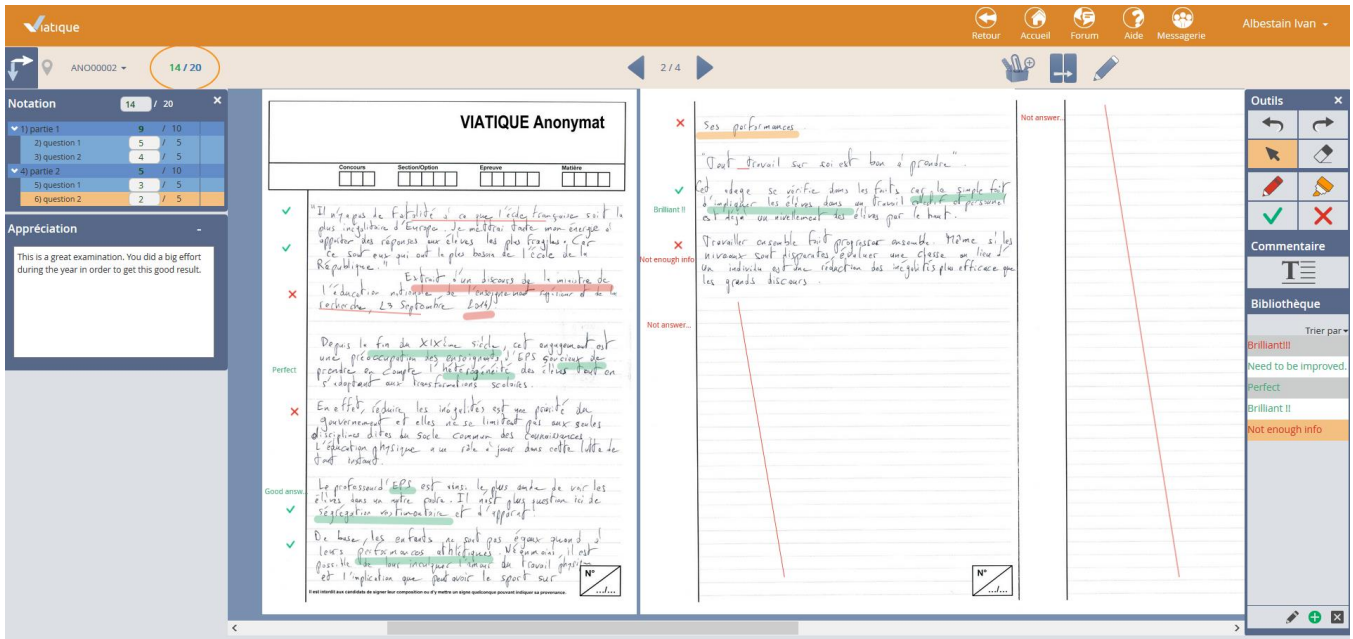 Viatique
Retour
Accueil
Forum
Aide
Messagerie
Albestain Ivan
ANO00002
14 / 20
2 / 4
Notation 14 / 20 ×
1) partie 1 9 / 10
2) question 1 5 / 5
3) question 2 4 / 5
4) partie 2 5 / 10
5) question 1 3 / 5
6) question 2 2 / 5
Appréciation -
This is a great examination. You did a big effort
during the year in order to get this good result.
VIATIQUE Anonymat
Concours Section/Option Epreuve Matière
"Il n'y a pas de Fatalité à ce que l'école française soit la
plus inégalitaire d'Europe. Je mettrai toute mon énergie à
apporter des réponses aux élèves les plus fragiles. Car
ce sont eux qui ont le plus besoin de l'école de la
République."
Extrait d'un discours de la ministre de
l'éducation nationale de l'enseignement supérieur et de la
recherche, 23 Septembre 2014)
Depuis la fin du XIXème siècle, cet engagement est
une préoccupation des enseignants d'EPS soucieux de
prendre en compte l'hétérogénéité des élèves tout en
s'adaptant aux transformations scolaires.
Perfect
En effet, réduire les inégalités est une priorité du
gouvernement et elles ne se limitent pas aux seules
disciplines dites du Socle commun des connaissances.
L'éducation physique a un rôle à jouer dans cette lutte de
tout instant.
Good answ...
Le professeur d'EPS est ainsi le plus amène de voir les
élèves dans un autre cadre. Il n'est plus question ici de
ségrégation vestimentaire et d'apparat.
De base, les enfants ne sont pas égaux quand à
leurs performances athlétiques. Néanmoins, il est
possible de leur inculquer l'amour du travail physique
et l'implication que peut avoir le sport sur
N°
.../...
Il est interdit aux candidats de signer leur composition ou d'y mettre un signe quelconque pouvant indiquer sa provenance.
Ses performances.
"Tout travail sur soi est bon à prendre".
Cet adage se vérifie dans les faits car le simple fait
d'impliquer les élèves dans un travail collectif et personnel
est déjà un nivellement des élèves par le haut.
Brilliant !!
Travailler ensemble fait progresser ensemble. Même si les
niveaux sont disparates, évaluer une classe au lieu d'
un individu est une réduction des inégalités plus efficace que
les grands discours.
Not enough info
Not answer...
N°
.../...
Not answer...
Outils ×
Commentaire
T
Bibliothèque
Trier par
Brilliant!!!
Need to be improved.
Perfect
Brilliant !!
Not enough info